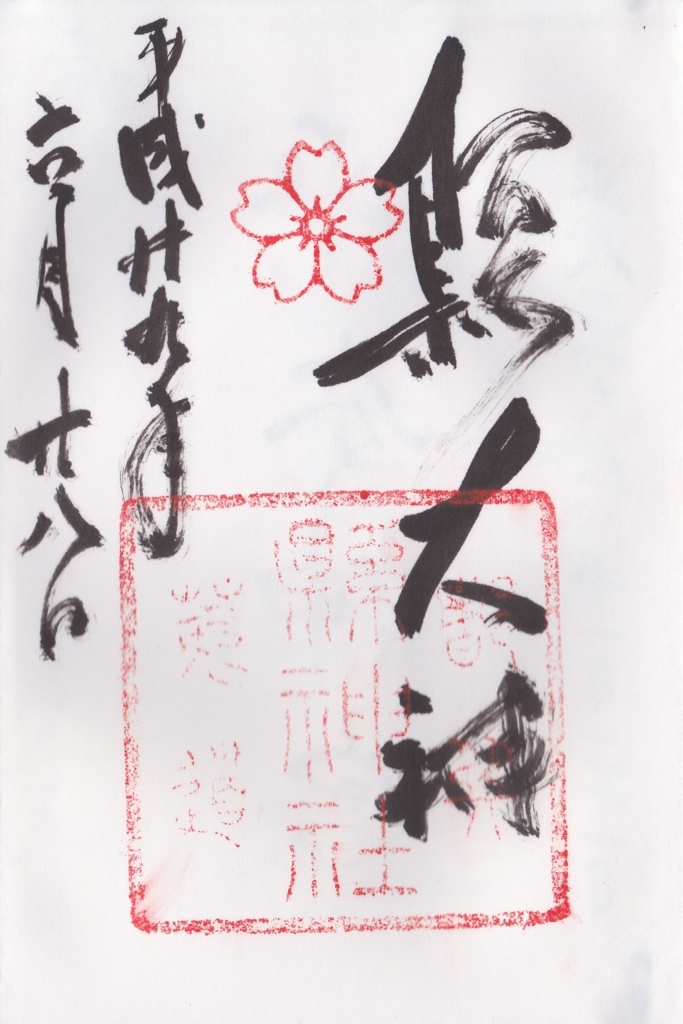 縣大神
平成廿九年
六月廿八日
縣神社